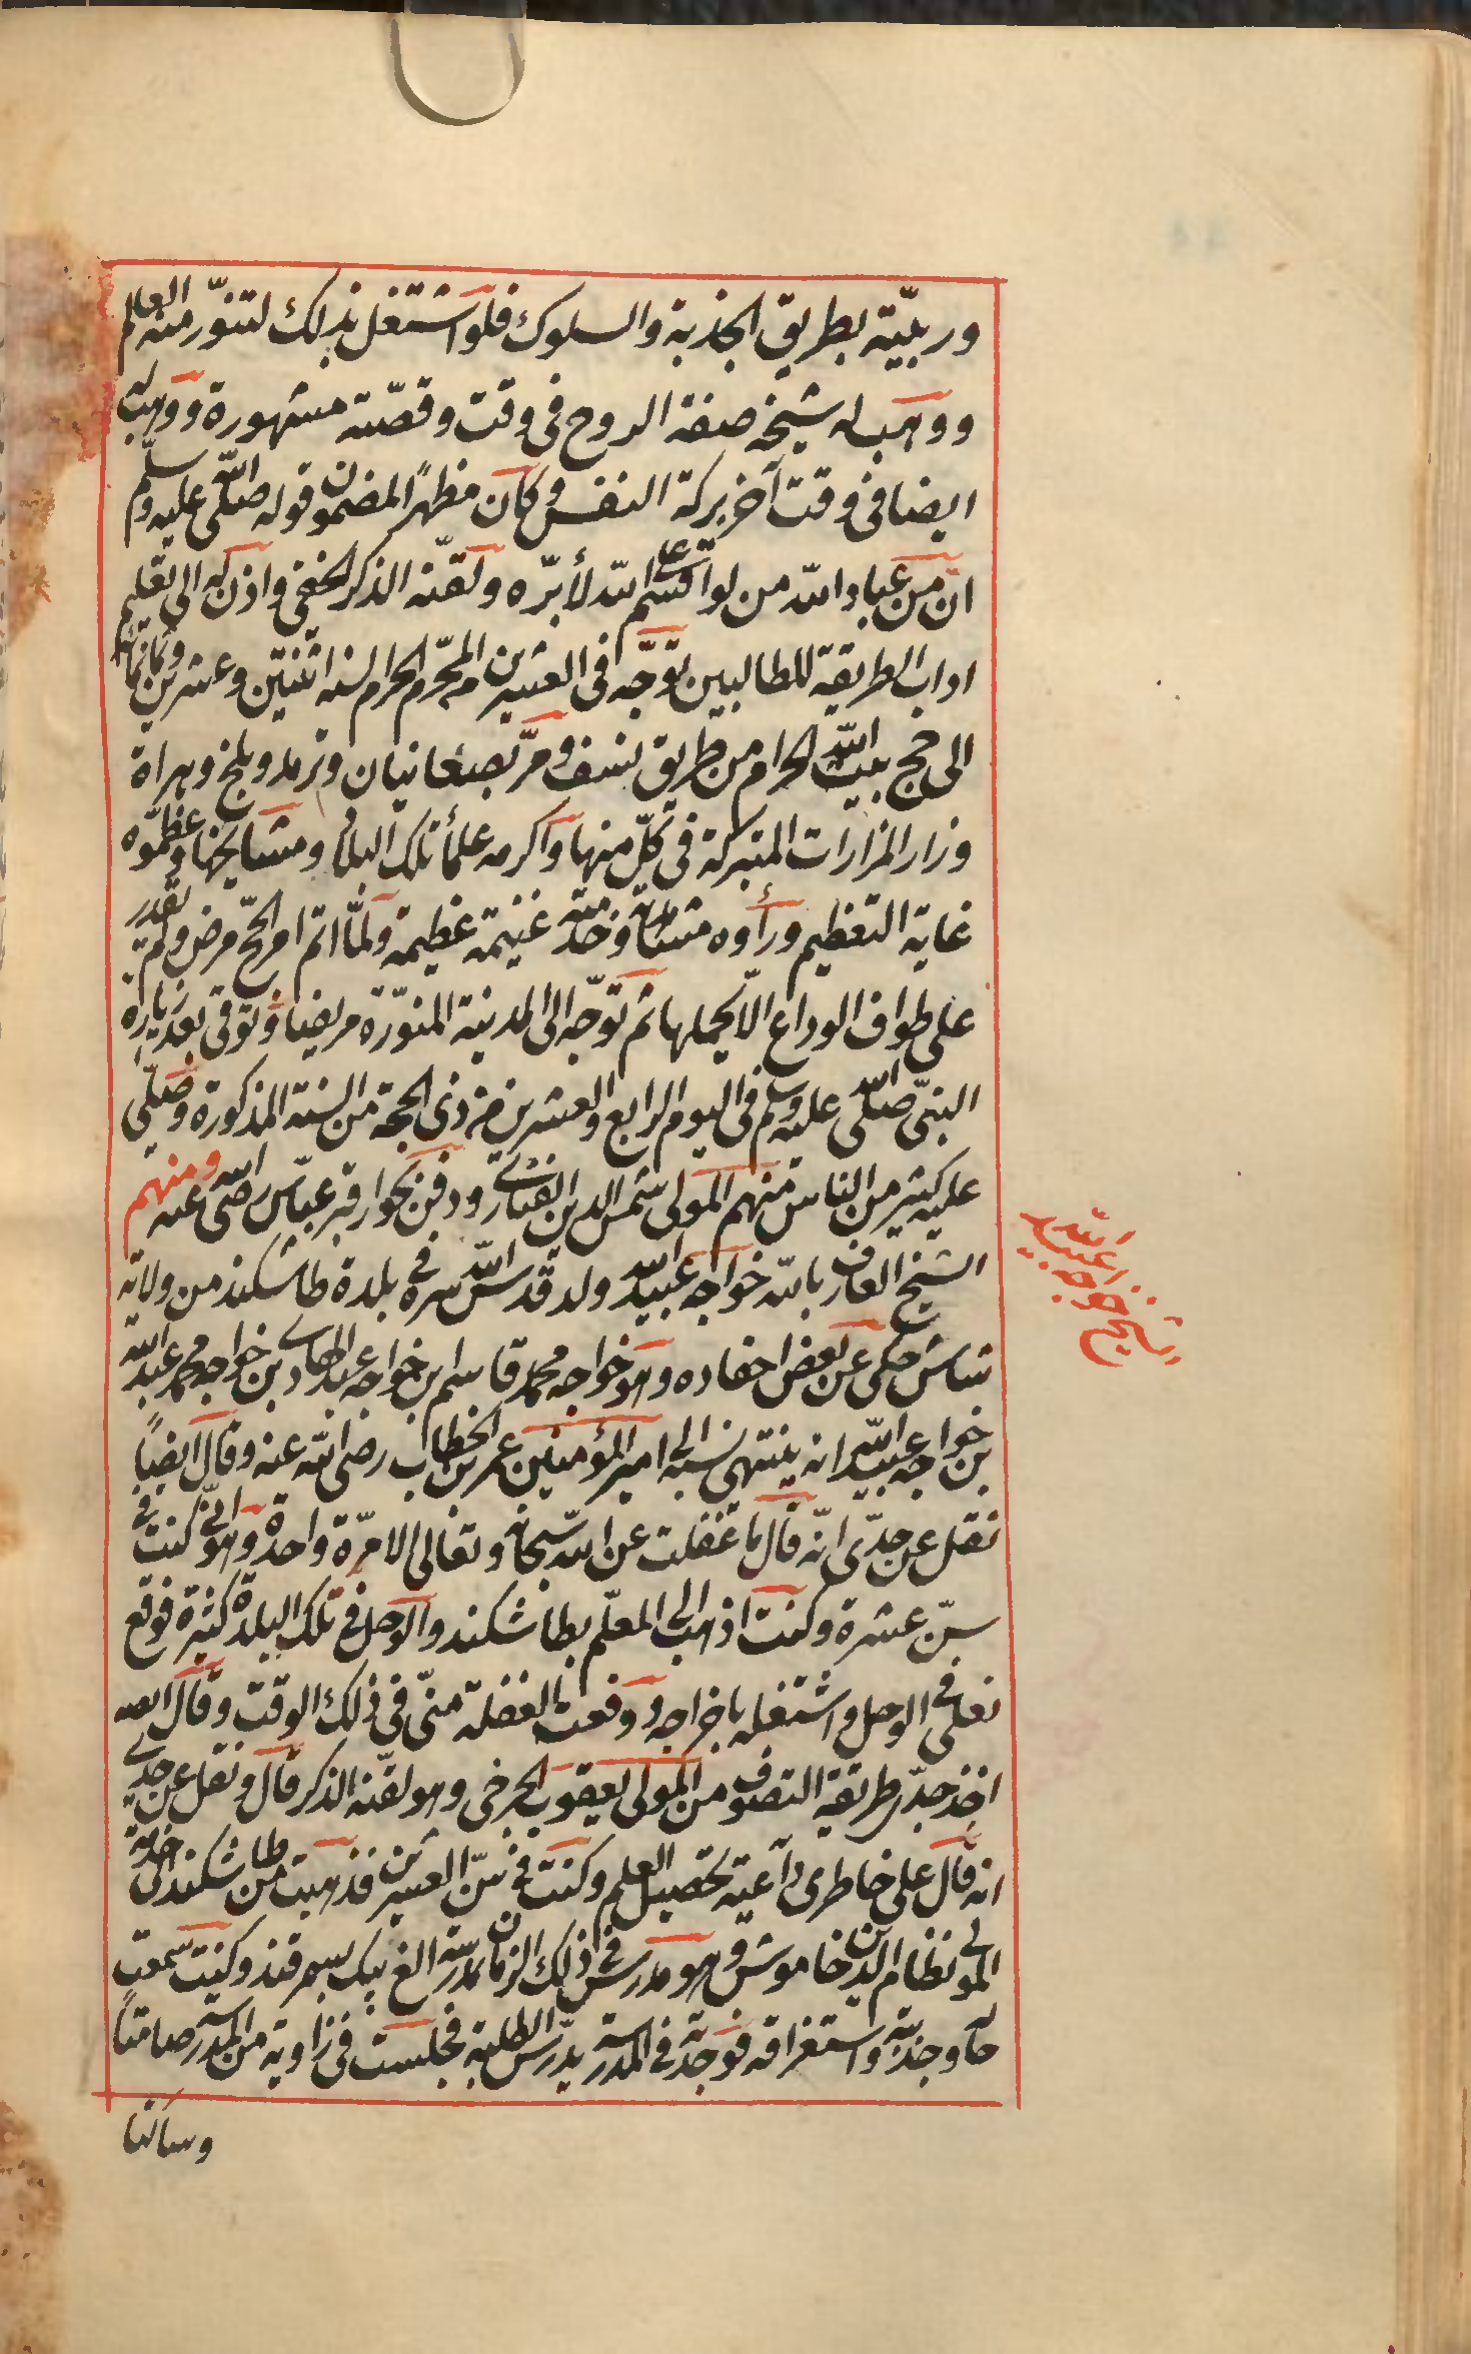 وربّيته بطريق الجذبة والسلوك فلو اشتغل بذلك لتنوّر منه العالم
ووهب له شيخه صفة الروح في وقت وقصّته مشهورة ووهب له
ايضا في وقت آخر بركة النفس وكان مظهرًا لمضمون قوله صلّى الله عليه وسلّم
انّ من عباد الله من لو اقسم على الله لأبرّه ولقّنه الذكر الخفي واذن له الى تعليم
اداب الطريقة للطالبين توجّه في العشرين من المحرّم الحرام لسنه اثنتين وعشرين وثمانمائة
الى حج بيت الله الحرام من طريق نسف ومرّ بصغانيان وترمد وبلخ وهراة
وزار المزارات المتبركة في كلّ منها واكرمه علمأ تلك البلاد ومشايخها وعظّموه
غاية التعظيم ورأوه مشاهدته وخدمته غنيمة عظيمة ولمّا اتم امر الحجّ مرض ولم يقدر
على طواف الوداع الّا بحملها ثم توجّه الى المدينة المنوّرة مريضا وتوفى بعد زيارة
النبىّ صلّى الله عليه وسلم في اليوم الرابع والعشرين من ذى الحجة من السنة المذكورة وصلّى
عليه كثير من الناس منهم المولى شمس الدين الفنارى ودفن بجوار قبر عبّاس رضى الله عنه ومنهم
الشيخ العارف بالله خواجه عبيد الله ولد قدّس الله سره في بلدة طاشكند من ولاية
شاش حكى عن بعض احفاده وهو خواجه محمد قاسم بن خواجه عبد الهادى بن خواجه محمد عبد الله
بن خواجه عبيد الله انه ينتهى نسبه الى امير المؤمنين عمر بن الخطاب رضى الله عنه وقال ايضًا
نقل عن جدّى انّه قال ما غفلت عن الله سبحانه وتعالى الا مرّة واحدة وهو انّى كنت في
سنّ عشرة وكنت اذهب الى المعلّم بطاشكند والوحل في تلك البلدة كثيرة فوقع
نعلى في الوحل واشتغله باخراجه ووقعت الغفلة منّى في ذلك الوقت وقال ايضا
اخذ جدّى طريقة التصوف من المولى يعقوب الجرخى وهو لقّنه الذكر قال ونقل عن جدى
انه قال على خاطرى داعية تحصيل العلم وكنت في سنّ العشرين فذهبت من طاشكند الى خدمة
المولى نظام الدين خاموش وهو مدرس في ذلك الزمان بمدرسة الغ بيك بسمرقند وكنت سمعت
حاله وجذبته واستغراقه فوجدته في المدرسة يدّرس الطلبة فجلست في زاوية من المدرسة صامتًا
وساكتا
الشيخ خواجه عبيد الله